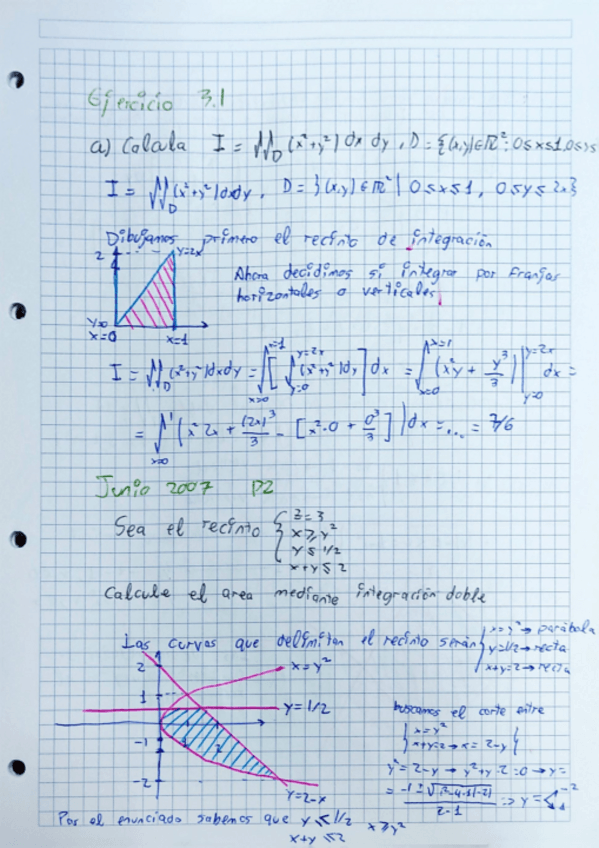 Ejercicio 3.1
a) Calcula I = ∬_D (x²+y²) dx dy, D = {(x,y)∈ℝ²: 0≤x≤1, 0≤y≤
I = ∬_D (x²+y²) dx dy, D = {(x,y)∈ℝ² | 0≤x≤1, 0≤y≤2x}
Dibujamos primero el recinto de integración
2
y=2x
Ahora decidimos si integrar por franjas
horizontales o verticales
y=0
x=0
x=1
I = ∬_D (x²+y²) dx dy = ∫_{x=0}^{x=1} [∫_{y=0}^{y=2x} (x²+y²) dy] dx = ∫_{x=0}^{x=1} (x²y + y³/3) |_{y=0}^{y=2x} dx =
= ∫_{x=0}^{1} (x² 2x + (2x)³/3 - [x²·0 + 0³/3]) dx = ... = 7/6
Junio 2007 P2
Sea el recinto
x≥y²
y≤1/2
x+y≤2
Calcule el area mediante integración doble
Las curvas que delimitan el recinto serán
x=y² → parábola
y=1/2 → recta
x+y=2 → recta
2
x=y²
1
y=1/2
-1
1
2
-2
y=2-x
buscamos el corte entre
x=y²
x+y=2 → x=2-y
y²=2-y → y²+y-2=0 → y=
= -1±√(1²-4·1(-2)) / 2·1 => y= -2
1
Por el enunciado sabemos que y≤1/2 x≥y²
x+y≤2